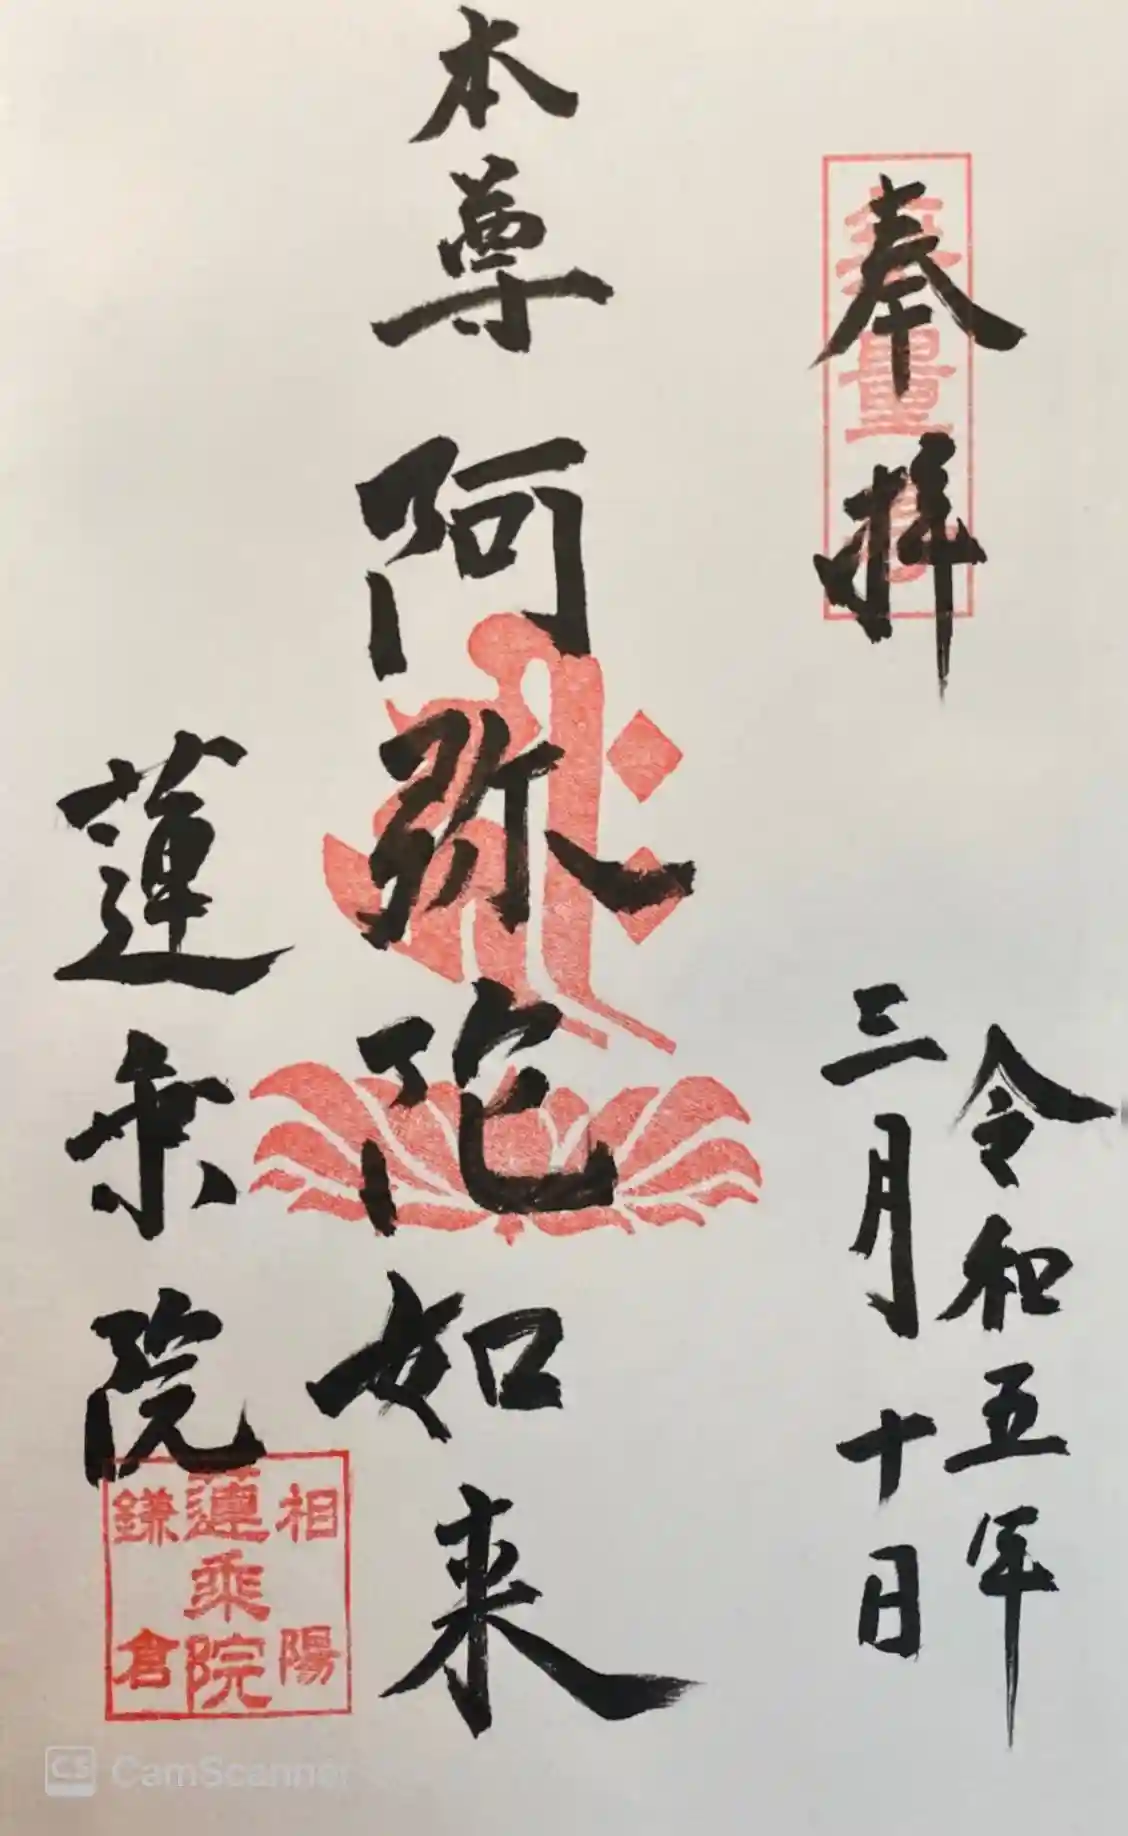 奉拝
令和五年
三月十日
本尊 阿弥陀如来
蓮乗院
相陽
蓮乗院
鎌倉
CS CamScanner